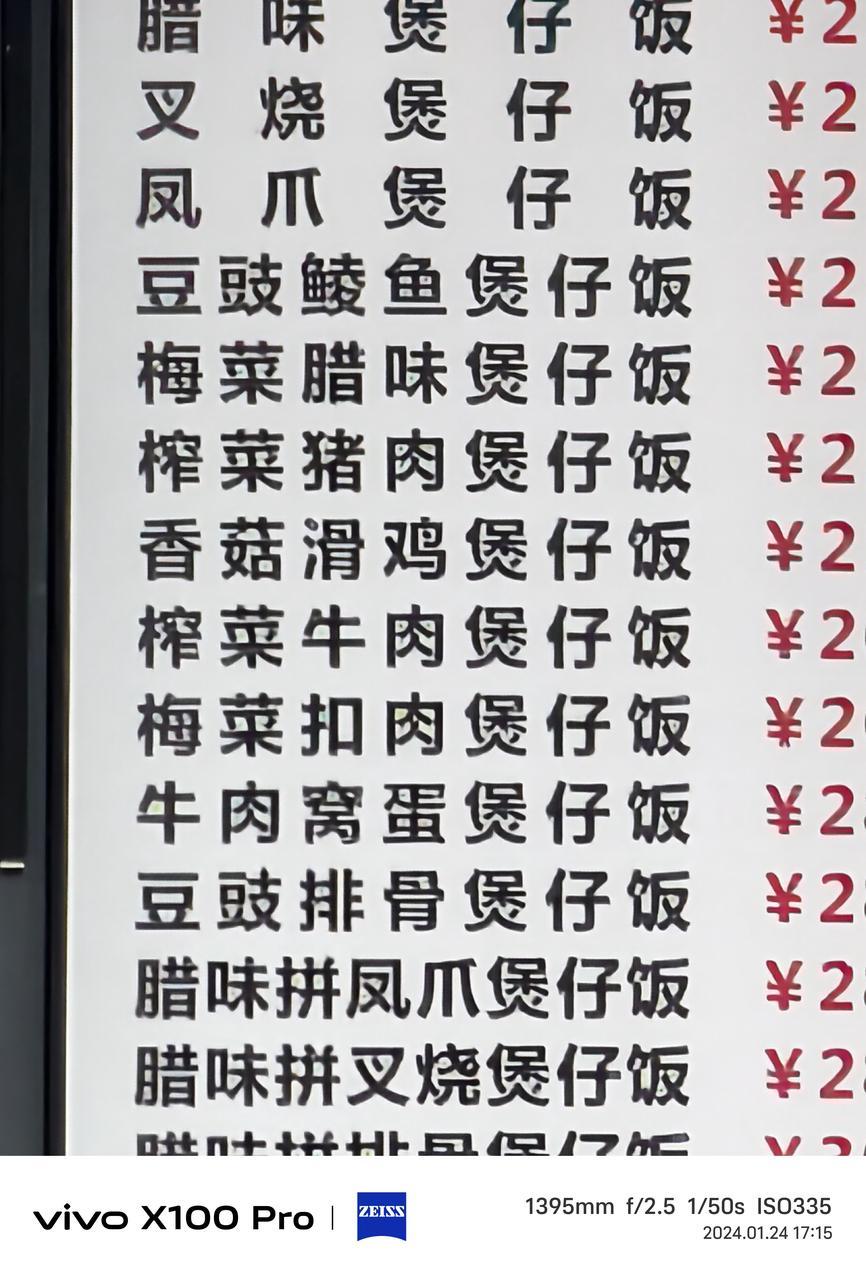 腊味煲仔饭 ¥2
叉烧煲仔饭 ¥2
凤爪煲仔饭 ¥2
豆豉鲮鱼煲仔饭 ¥2
梅菜腊味煲仔饭 ¥2
榨菜猪肉煲仔饭 ¥2
香菇滑鸡煲仔饭 ¥2
榨菜牛肉煲仔饭 ¥2
梅菜扣肉煲仔饭 ¥2
牛肉窝蛋煲仔饭 ¥2
豆豉排骨煲仔饭 ¥2
腊味拼凤爪煲仔饭 ¥2
腊味拼叉烧煲仔饭 ¥2
腊味拼排骨煲仔饭 ¥2
vivo X100 Pro | ZEISS
1395mm f/2.5 1/50s ISO335
2024.01.24 17:15